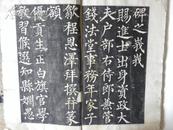 碑之義哉
賜進士出身資政大
夫戶部右侍郎兼管
錢法堂事務年家子
歙程恩澤拜撰并篆
額
優貢生正白旗官學
教習候選知縣姻愚